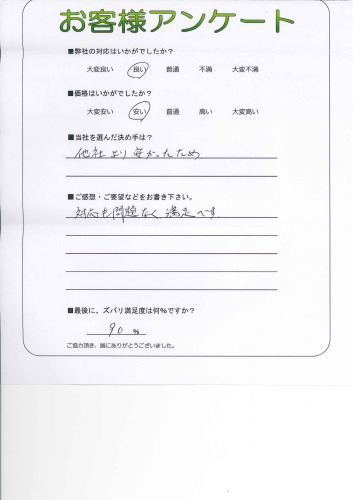 お客様アンケート
■弊社の対応はいかがでしたか?
大変良い 良い 普通 不満 大変不満
■価格はいかがでしたか?
大変安い 安い 普通 高い 大変高い
■当社を選んだ決め手は?
他社より安かったため
■ご感想・ご要望などをお書き下さい。
対応も問題なく満足です。
■最後に、ズバリ満足度は何%ですか?
90 %
ご協力頂き、誠にありがとうございました。